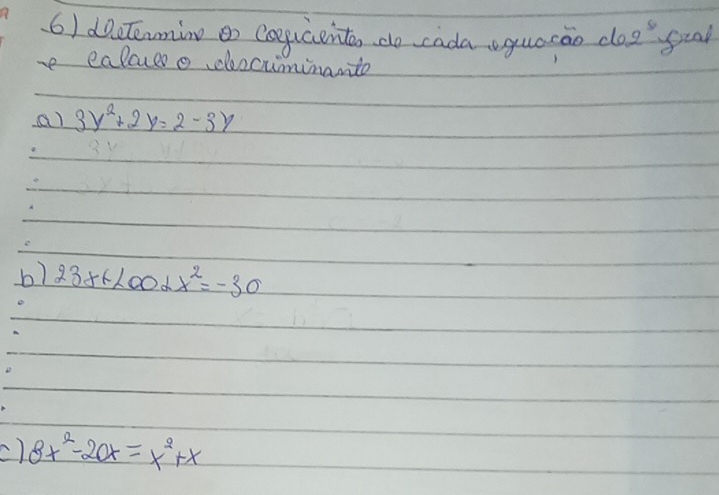 6) determine os coeficientes de cada equação do 2º grau
e calcule o descriminante
a) 3y²+2y=2-3y
b) 23x+100+x²=-30
c) 8x²-20x=x²+x